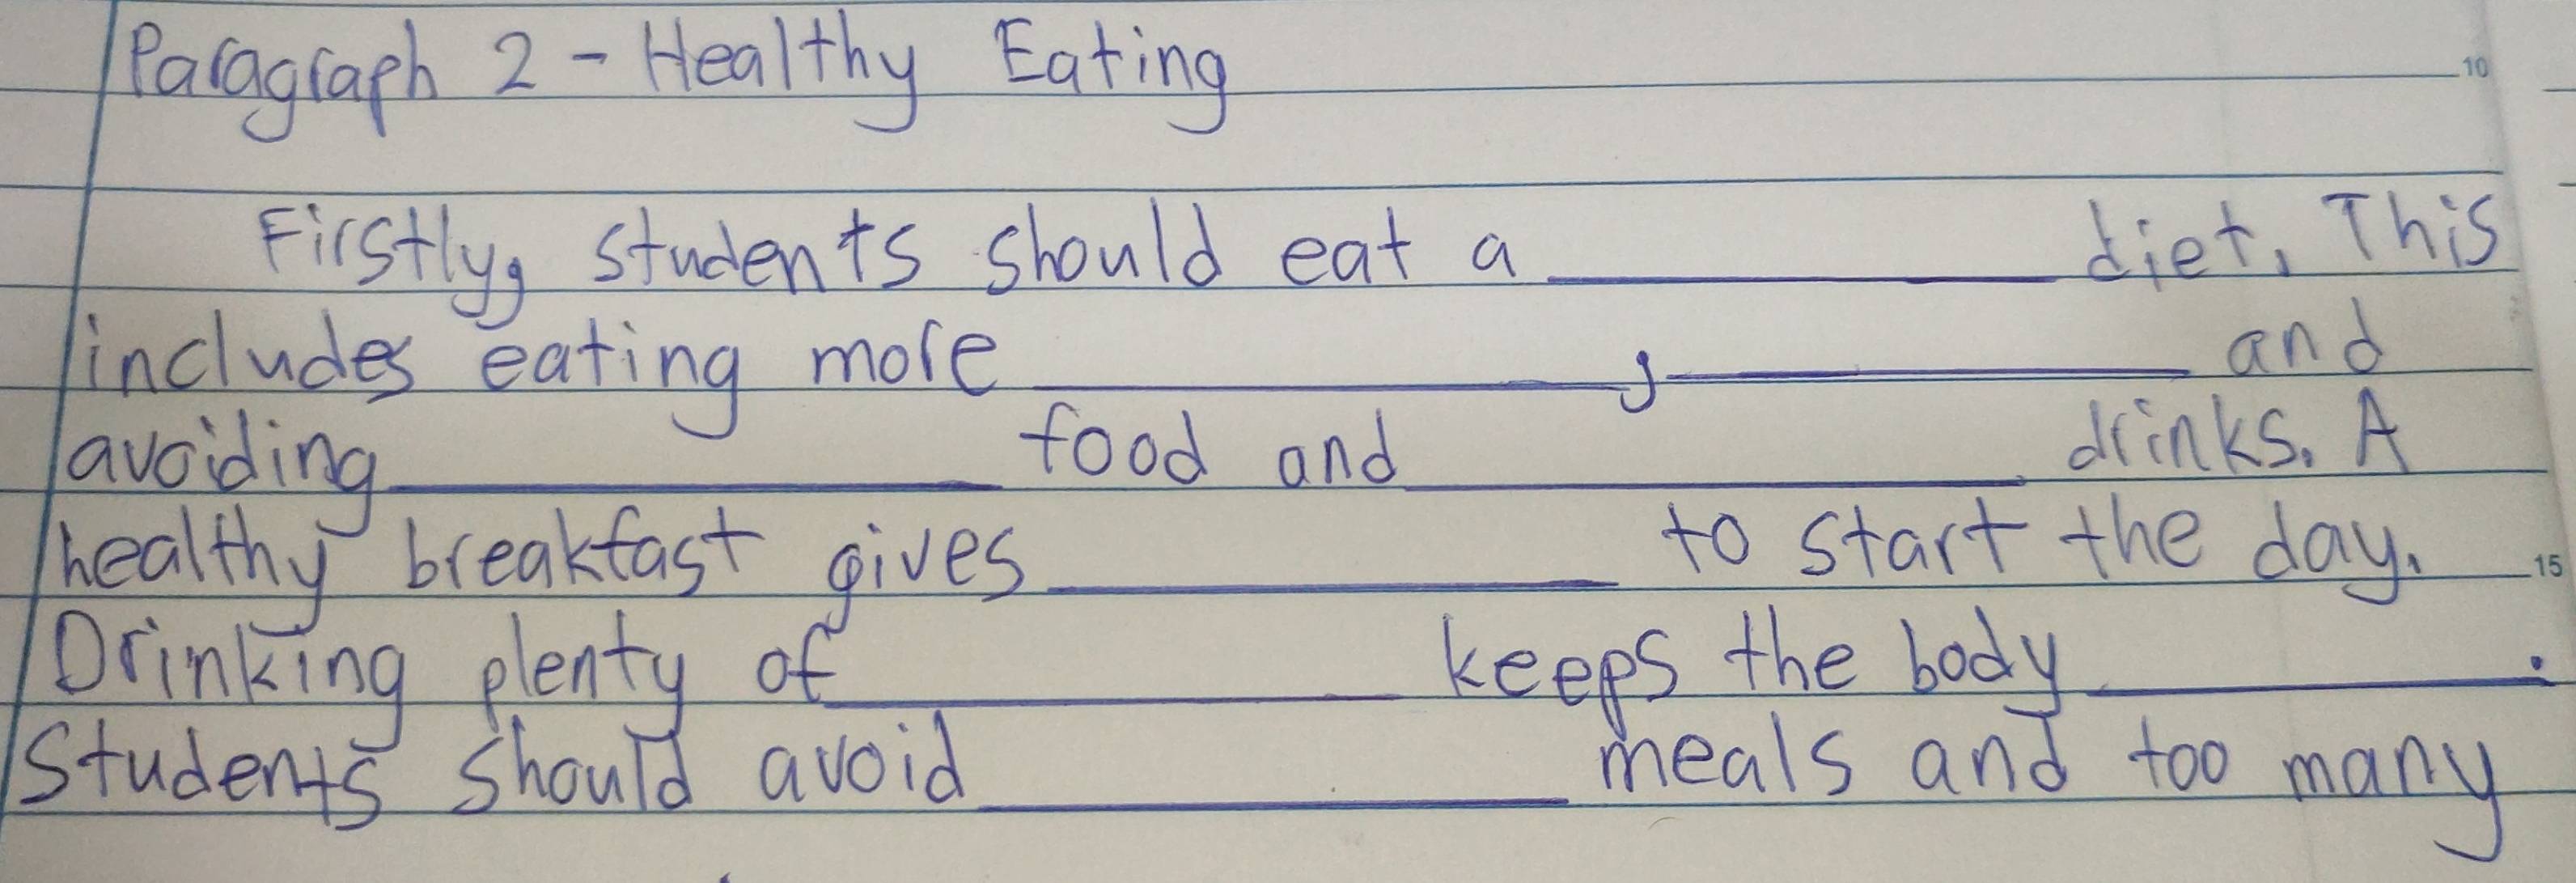 Paragraph 2 - Healthy Eating
10
Firstly, students should eat a __________ diet. This
includes eating more __________, __________ and
avoiding __________ food and __________ drinks. A
healthy breakfast gives __________ to start the day.
15
Drinking plenty of __________ keeps the body __________.
Students should avoid __________ meals and too many